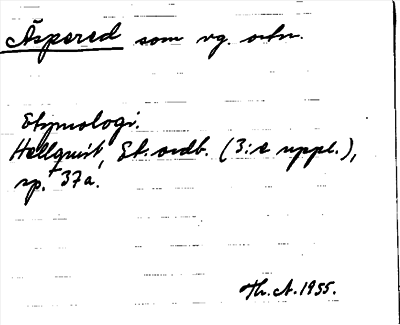 Äspered som vg. ortn.
Etymologi.
Hellquist, Et. ordb. (3:e uppl.),
sp. 37a.
Th. A. 1955.